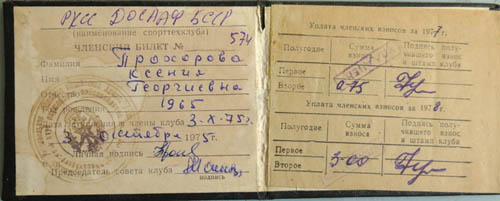 РУСС ДОСААФ БССР
(наименование спорттехклуба)
ЧЛЕНСКИЙ БИЛЕТ № 574
Фамилия Прохорова
Имя Ксения
Отчество Георгиевна
рождения 1965
вступления в члены клуба 3-X-75г.
3 октября 1975г.
Личная подпись
Председатель совета клуба
подпись
Уплата членских взносов за 1977г.
Полугодие
Сумма взноса
Подпись получившего взнос и штамп клуба
Первое
Второе 0-75
Уплата членских взносов за 1978г.
Полугодие
Сумма взноса
Подпись получившего взнос и штамп клуба
Первое
Второе 3-00